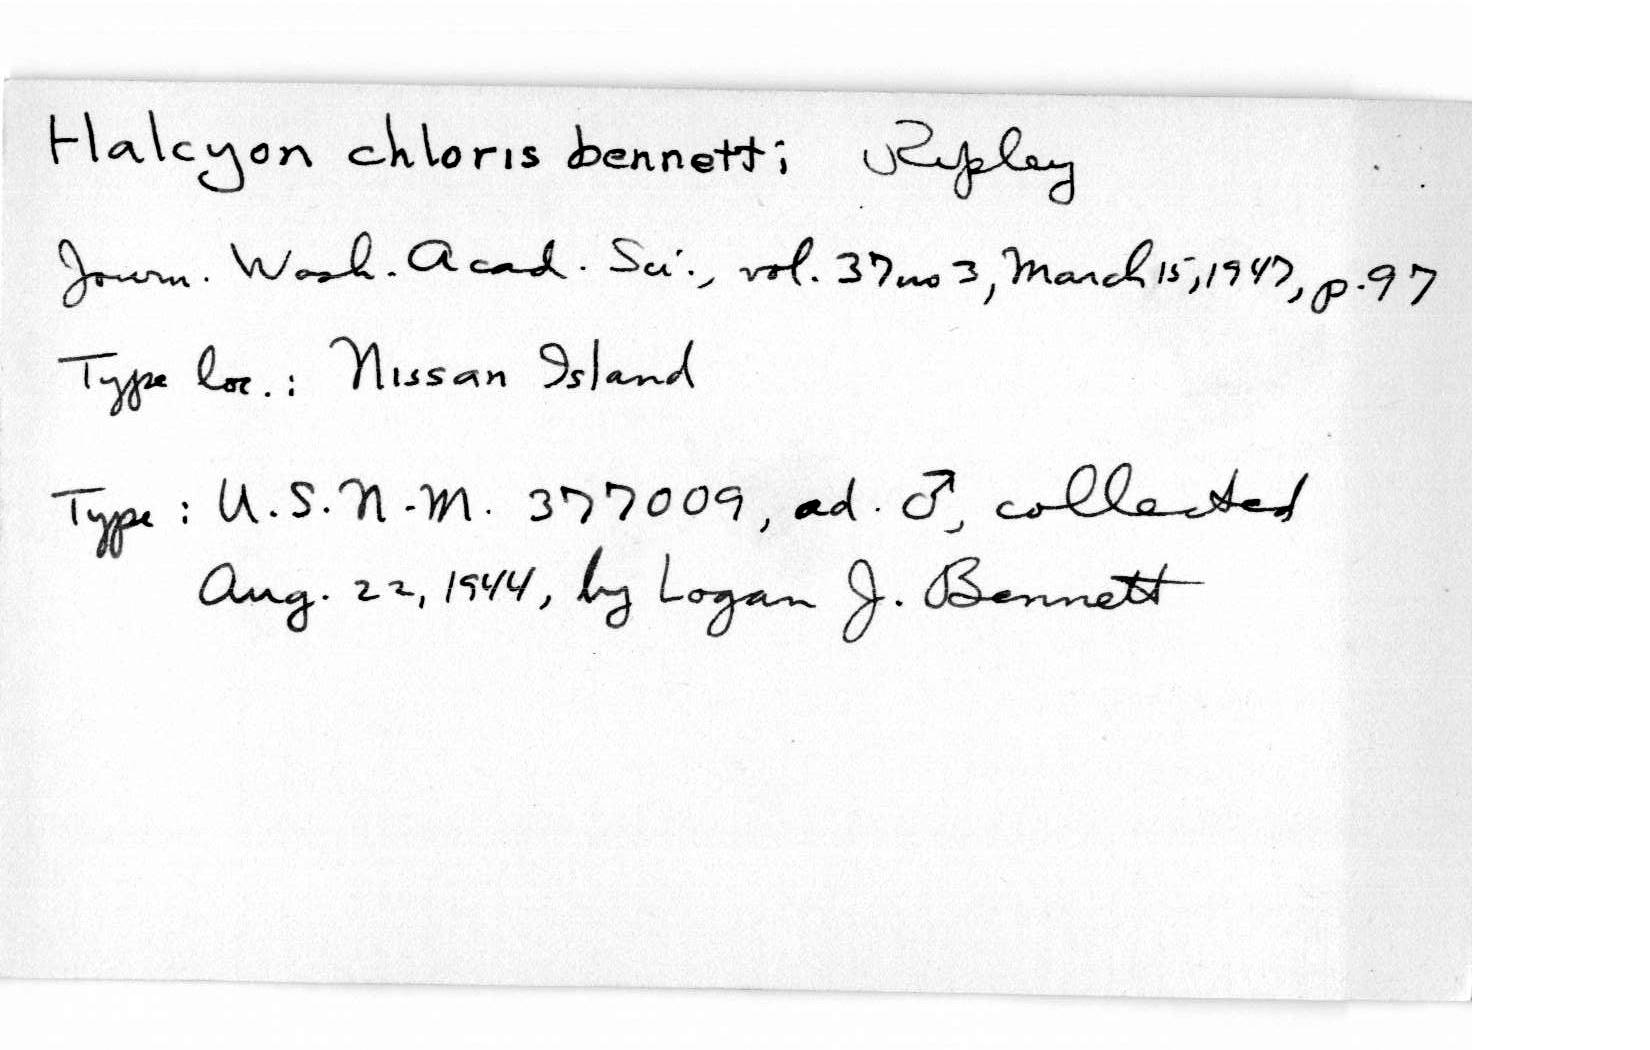 Halcyon chloris bennetti Ripley
Journ. Wash. Acad. Sci., vol. 37 no 3, March 15, 1947, p. 97
Type loc.: Nissan Island
Type: U.S.N.M. 377009, ad. ♂, collected
Aug. 22, 1944, by Logan J. Bennett